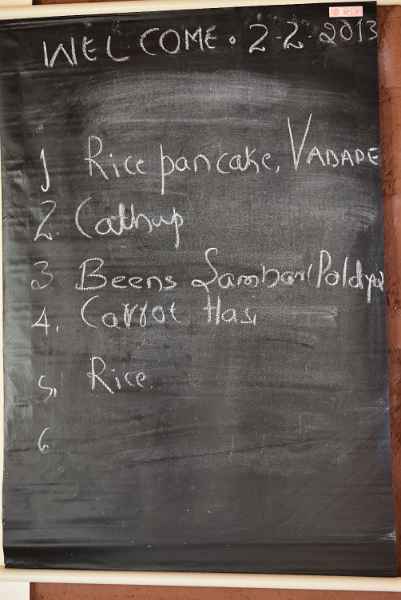 WELCOME. 2-2-2013
1 Rice pancake, VADADE
2. Cathup
3 Beens Sambar (Poldya
4. Carrot Hasi
5, Rice.
6